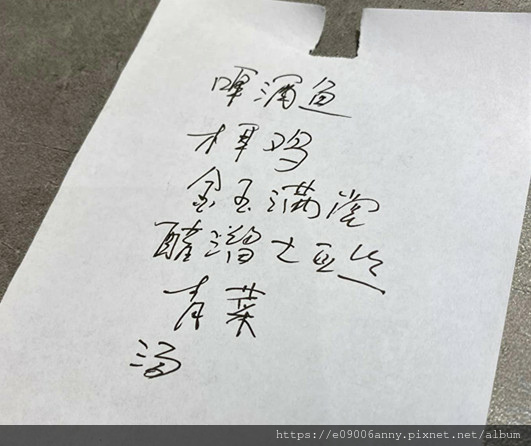 啤酒鱼
木旱鸡
金玉满堂
醋溜土豆丝
青菜
汤
https://e09006anny.pixnet.net/album